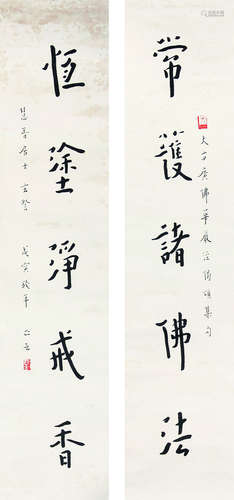 常護諸佛法
大方廣佛華嚴經偈頌集句
恆塗淨戒香
居士
戊寅